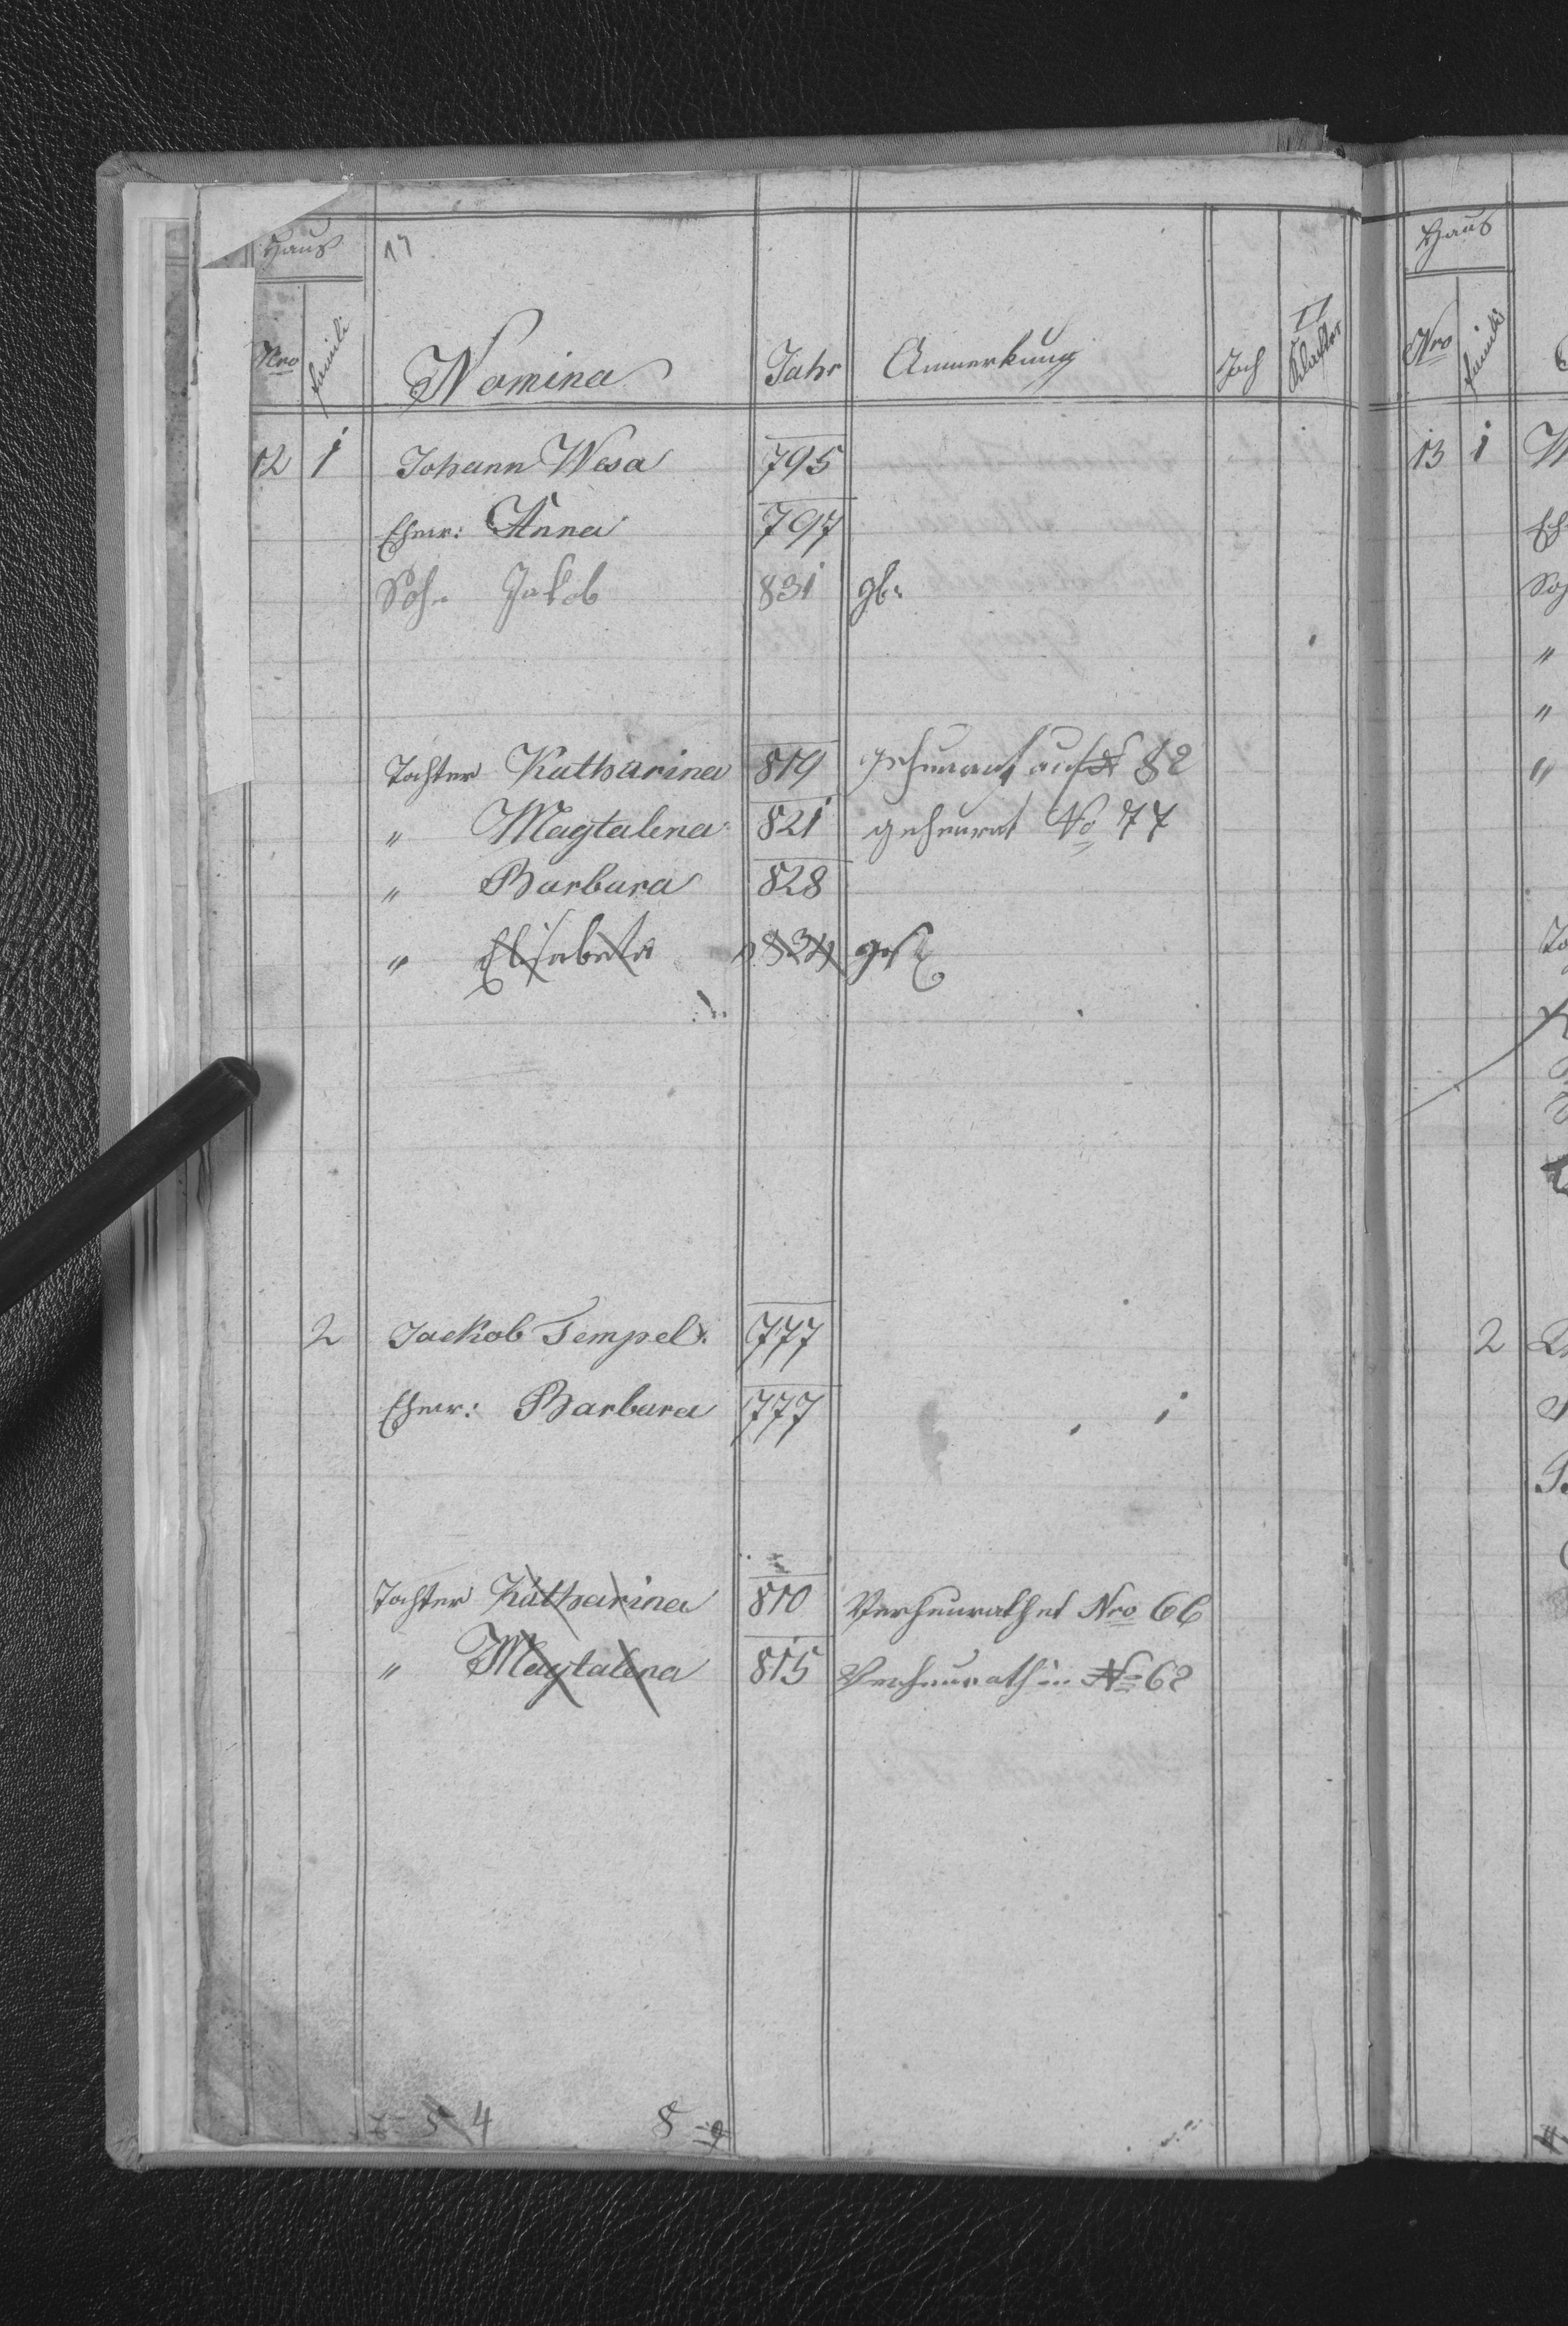 Haus 17
Nro familie Nomina Jahr Anmerkung Joch II Klafter
12 1 Johann Wesa 795
Ehew: Anna 797
Sohn Jakob 831 gb:
Tochter Katharina 819 geheurant auf № 82
" Magtalena 821 geheurat No 77
" Barbara 828
" Elisabeta 1834 gest
2 Jackob Tempel. 777
Ehew: Barbara 777
Tochter Katharina 810 Verheurathet Nro 66
" Magtalena 815 Verheurath in No 62
5 4 8
Haus
Nro familie
13 1
2